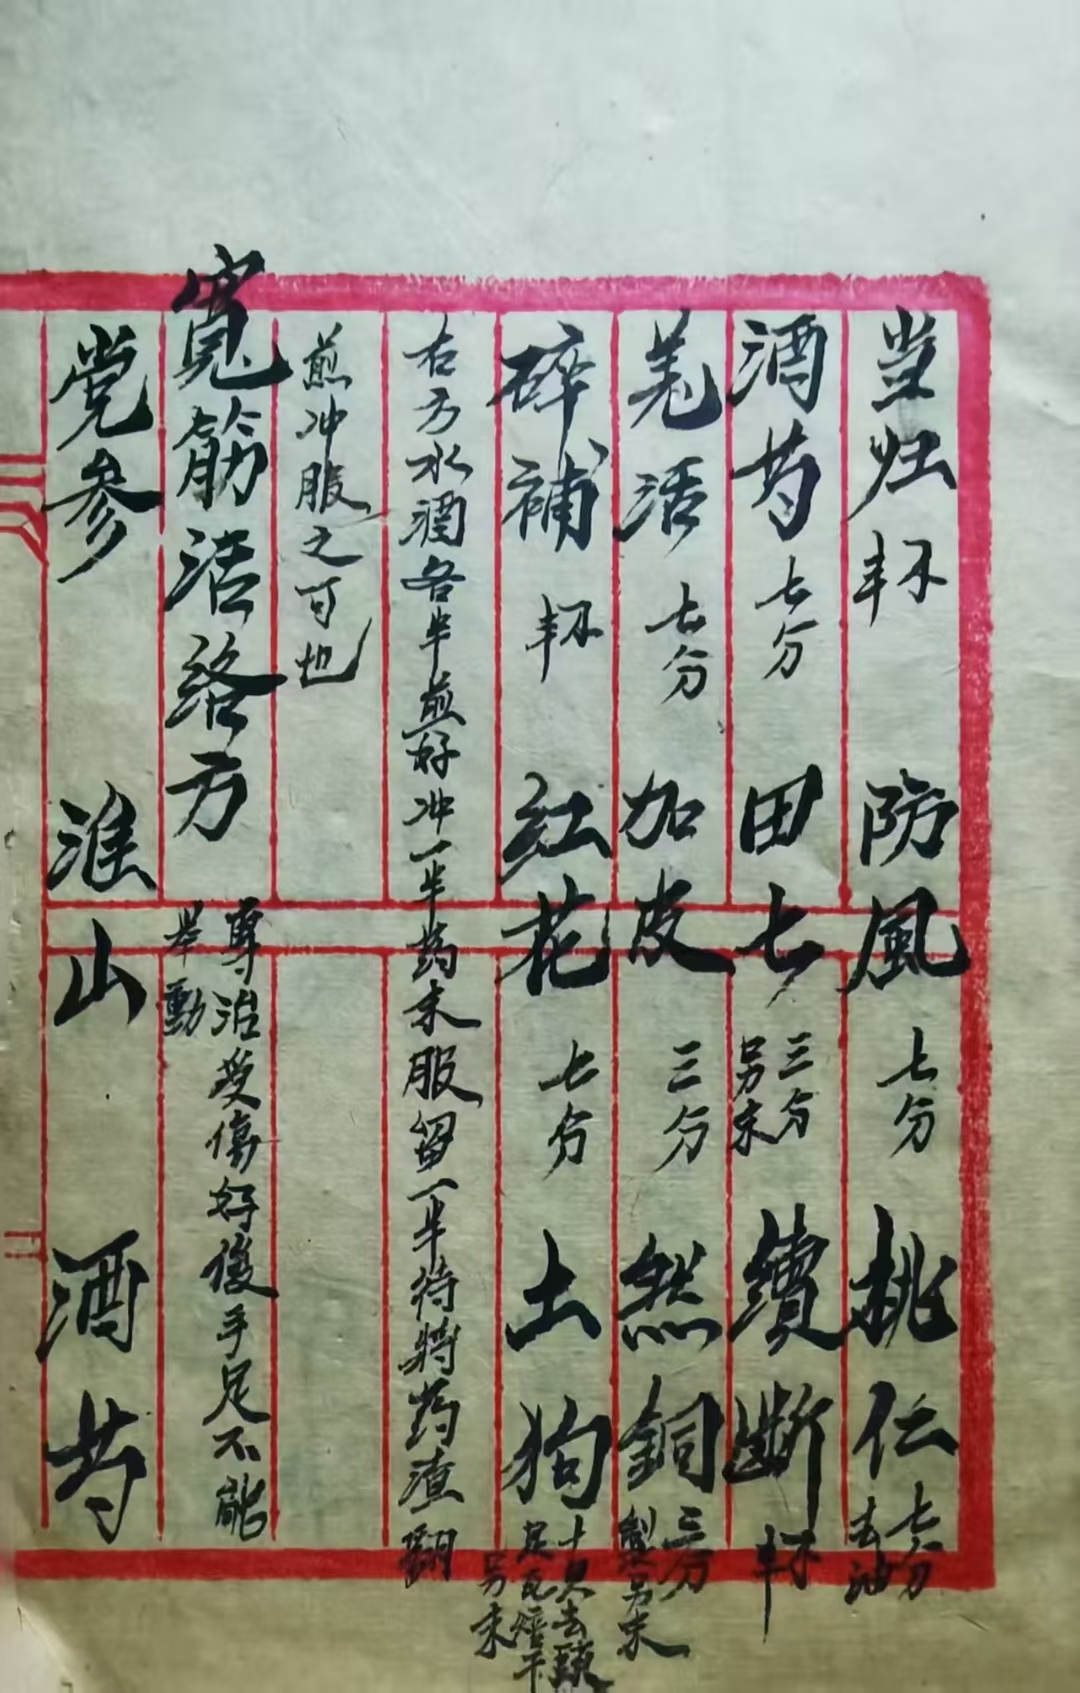 当归 防風 七分 桃仁 七分 去油
酒芍 七分 田七 三分 另末 續断
羌活 七分 加皮 三分 然銅 三分 製另末
碎補 红花 七分 土狗 十只去頭足瓦焙干另末
右方水酒各半煎好冲一半药末服留一半待将药渣翻
煎冲服之可也
寬筋活络方 專治受傷好後手足不能舉動
党参 淮山 酒芍